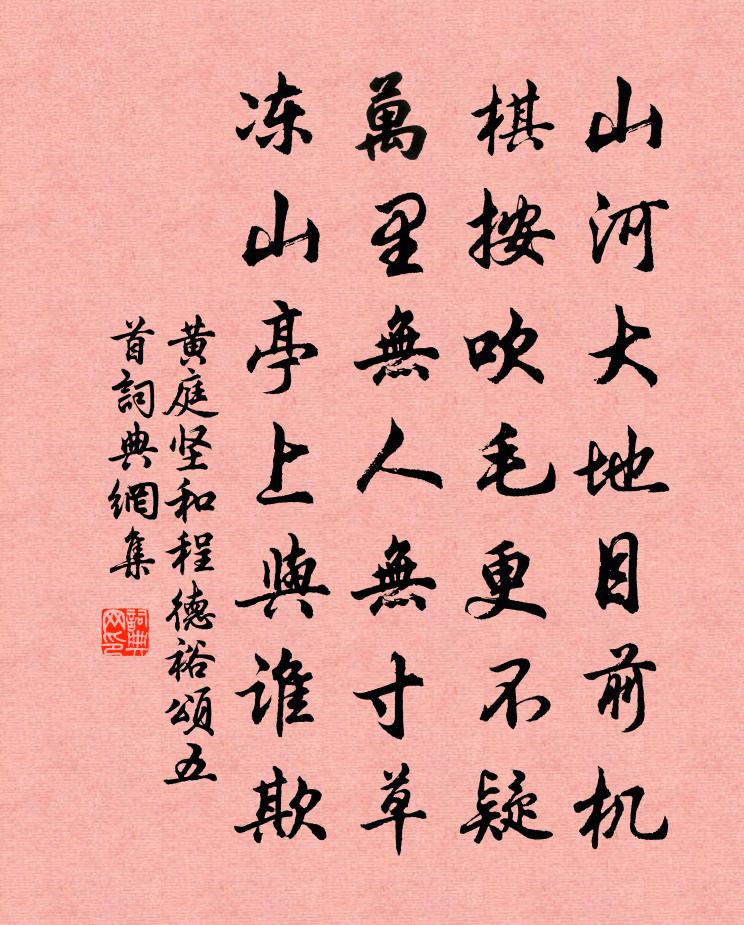 山河大地目前机
棋按吹毛更不疑
萬里無人無寸草
冻山亭上與谁欺
黄庭坚和程德裕頌五
首詞典網集
詞典网印